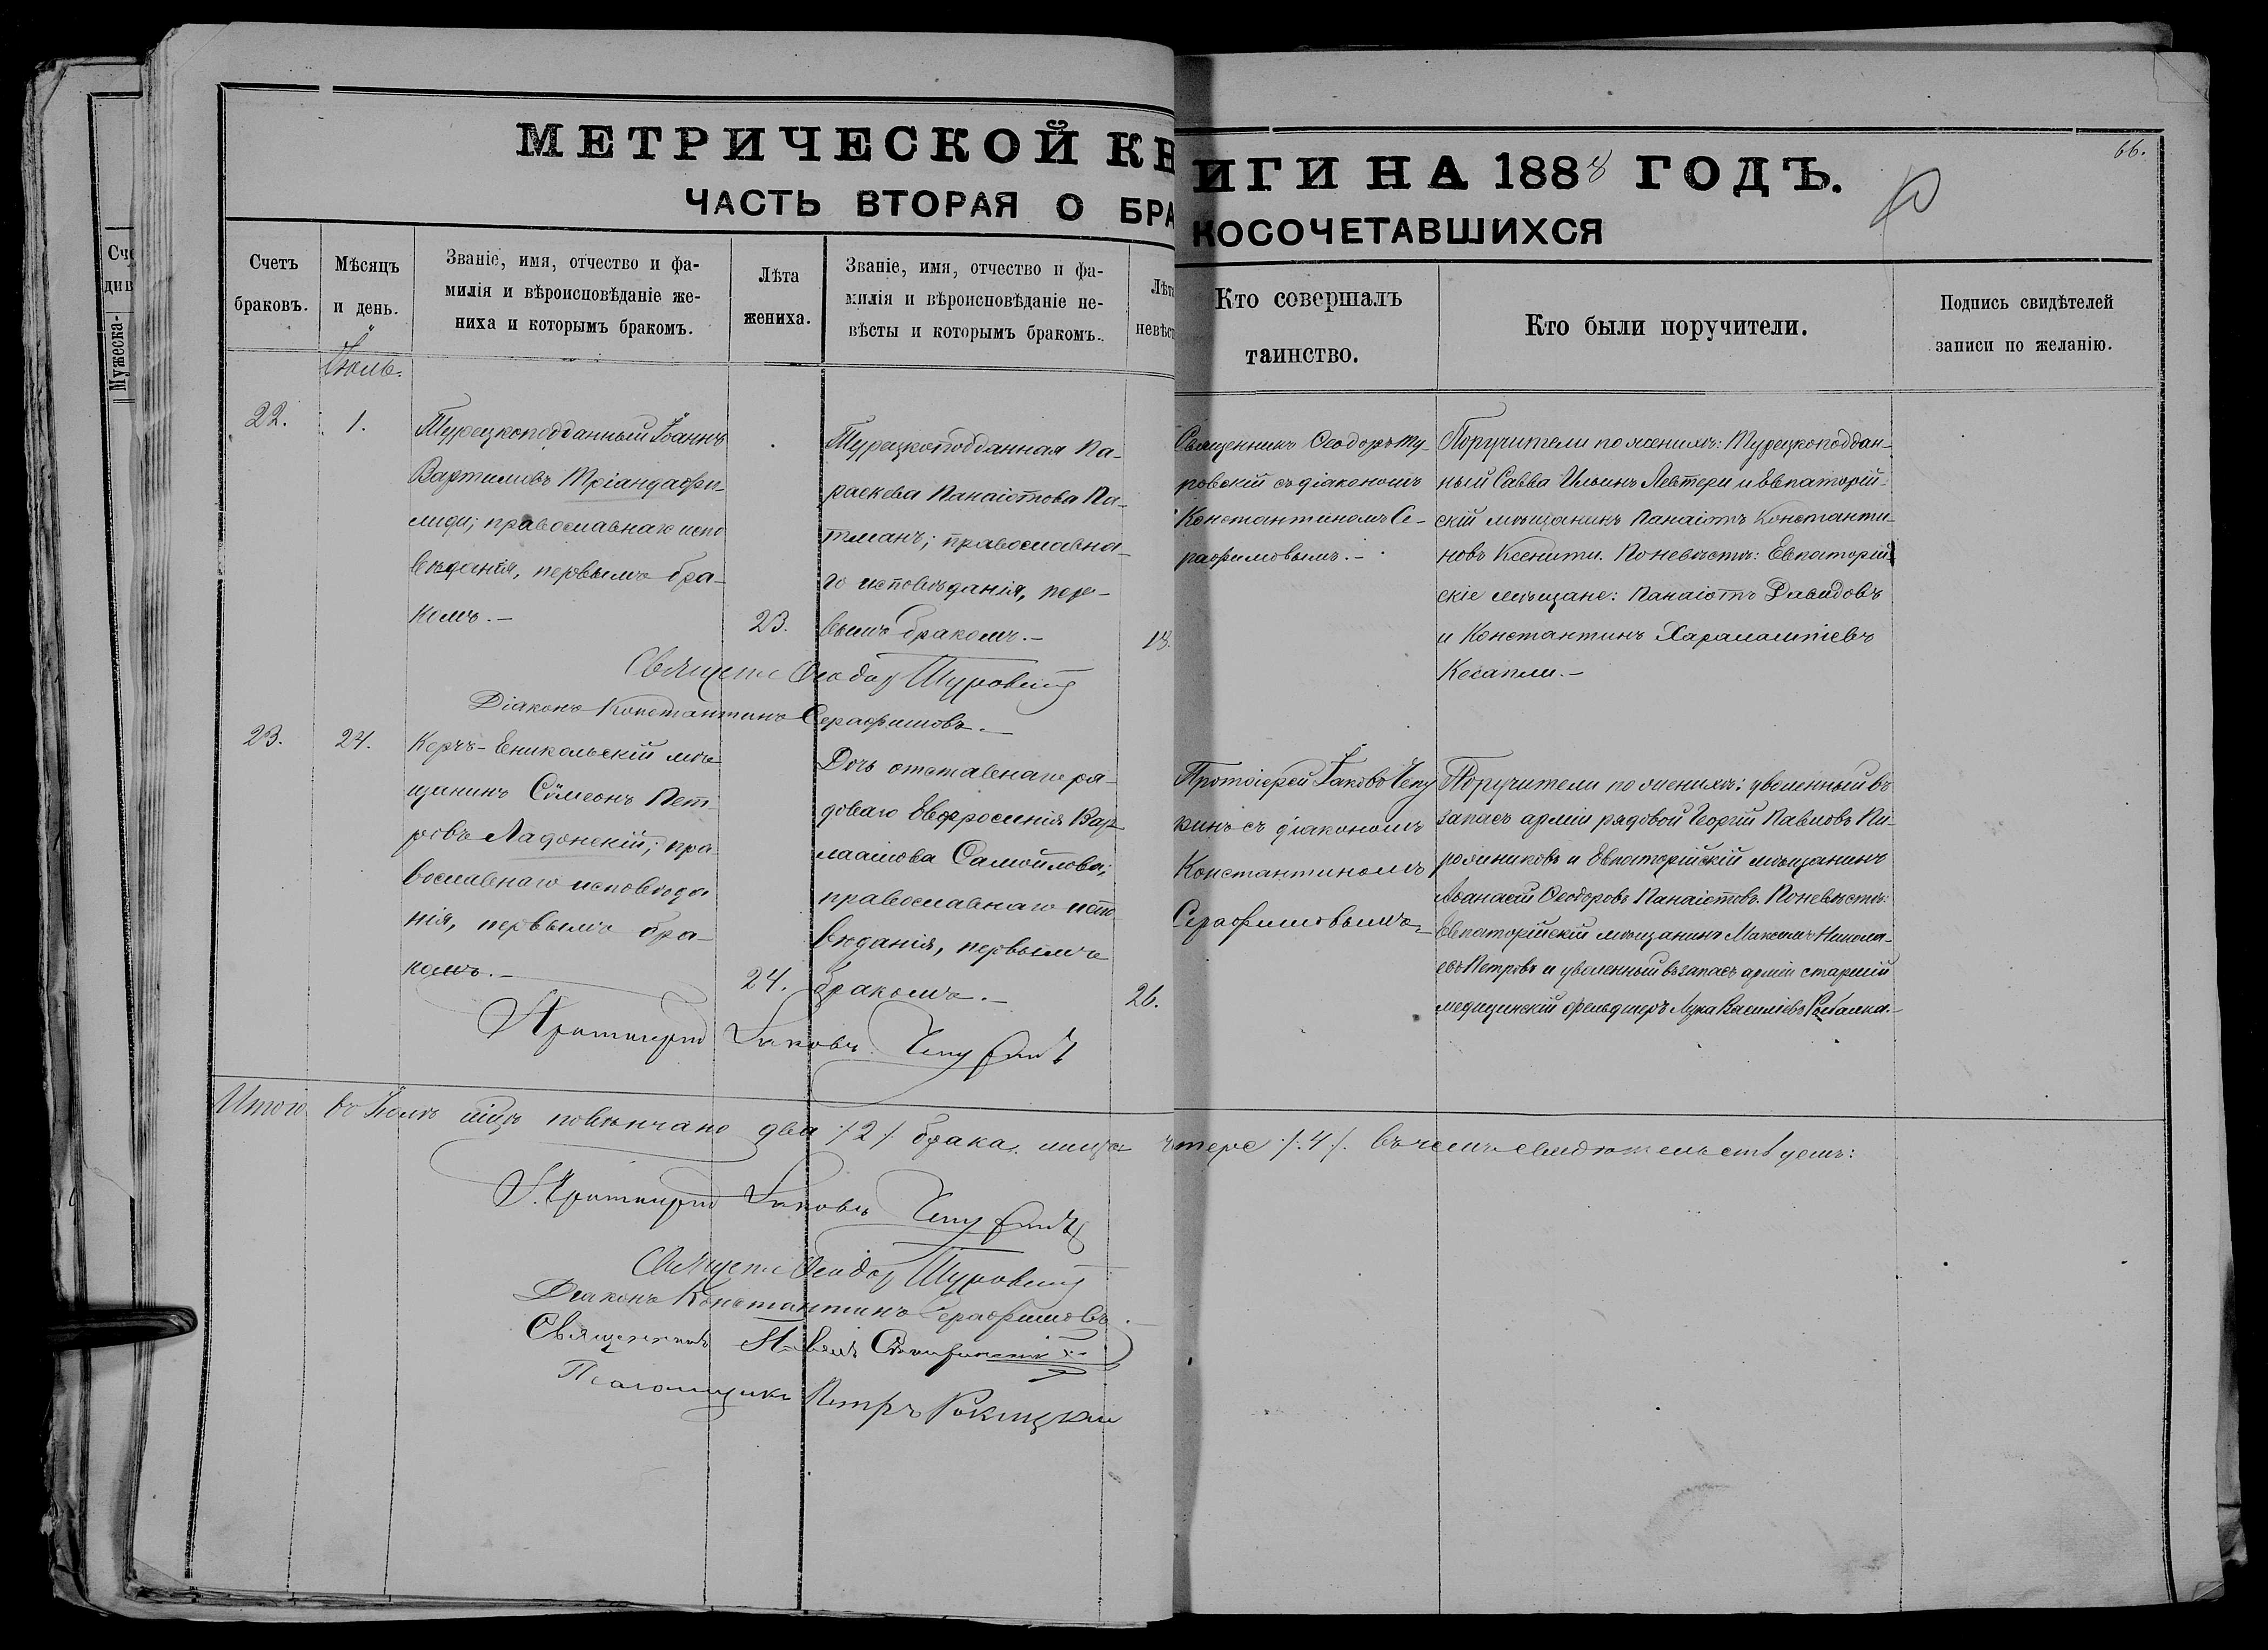 66.
МЕТРИЧЕСКОЙ КНИГИ НА 1888 ГОДЪ.
ЧАСТЬ ВТОРАЯ О БРАКОСОЧЕТАВШИХСЯ
Счетъ
браковъ.
Мѣсяцъ
и день.
Званіе, имя, отчество и фа-
милія и вѣроисповѣданіе же-
ниха и которымъ бракомъ.
Лѣта
жениха.
Званіе, имя, отчество и фа-
милія и вѣроисповѣданіе не-
вѣсты и которымъ бракомъ.
Лѣта
невѣст
Кто совершалъ
таинство.
Кто были поручители.
Подпись свидѣтелей
записи по желанію.
Іюль.
22.
1.
Турецкоподданный Іоаннъ
Тріандафи-
лиди; православнаго испо
вѣданія, первымъ бра-
комъ.-
23.
Турецкоподданная Па-
раскева Панаіотова Па-
тманъ; православна-
го исповѣданія, пер-
вымъ бракомъ.-
18.
Священникъ Ѳеодоръ Ту-
ровскій съ діакономъ
Константиномъ Се-
рафимовымъ.-
Поручители по женихѣ: Турецкоподдан-
ный Савва Ильинъ Лефтери и Евпаторій-
скій мѣщанинъ Панаіотъ Константи-
новъ Ксенити. По невѣстѣ: Евпаторій-
скіе мѣщане: Панаіотъ Давидовъ
и Константинъ Харалампіевъ
Косапли.-
Священн Ѳеодор Туровскій
Діаконъ Константинъ Серафимовъ.-
23.
24.
Керчь-Еникольскій мѣ
щанинъ Сѵмеонъ Пет-
ровъ Ладонскій; пра-
вославнаго исповѣда
нія, первымъ бра-
комъ.-
24.
Дочь отставнаго ря-
доваго Евфросинія Вар-
лаамова Самойлова;
православнаго испо-
вѣданія, первымъ
бракомъ.-
26.
Протоіерей Іаковъ Чепу
ринъ съ діакономъ
Константиномъ
Серафимовымъ.-
Поручители по женихѣ: уволенный въ
запасъ арміи рядовой Георгій Павловъ Пи-
рожниковъ и Евпаторійскій мѣщанинъ
Аѳанасій Ѳеодоровъ Панаіотовъ. По невѣстѣ:
Евпаторійскій мѣщанинъ Максимъ Никола-
евъ Петровъ и уволенный въ запасъ арміи старшій
медицинскій фельдшеръ Лука Василіевъ Рыбалка.-
Протоіерей Іаковъ Чепуринъ
Итого въ Іюлѣ мцѣ повѣнчано два /2/ брака, лица четере /.4/. въ чемъ свидѣтельствуемъ:
Протоіерей Іаковъ Чепуринъ
Священн Ѳеодор Туровскій
Діаконъ Константинъ Серафимовъ.
Священникъ Павелъ
Псаломщикъ Петръ Рокицкій
Сче
див
Мужеска-